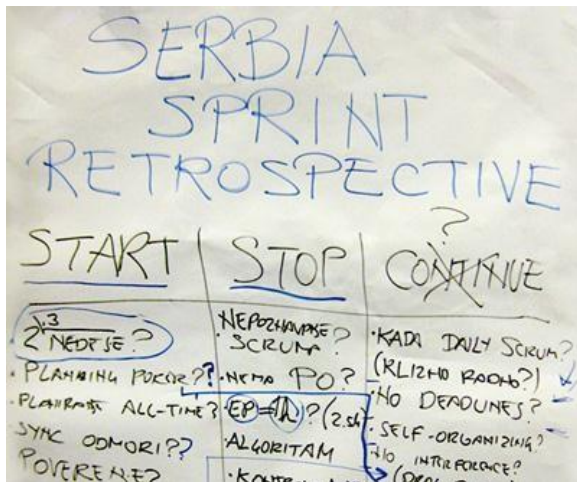 SERBIA
SPRINT
RETROSPECTIVE
?
START
STOP
CONTINUE
2 3
NEDELJE?
· PLANNING POKER??
· PLANIRANJE ALL-TIME?
SYNC ODMORI??
POVERENJE?
· NEPOZNAVANJE?
SCRUMA
· NEMA PO?
· EP = ? (2.5h
· ALGORITAM
· KADA DAILY SCRUM?
(KLIZNO RADNO?)
· NO DEADLINES?
· SELF-ORGANIZING?
NO INTERFERENCE?